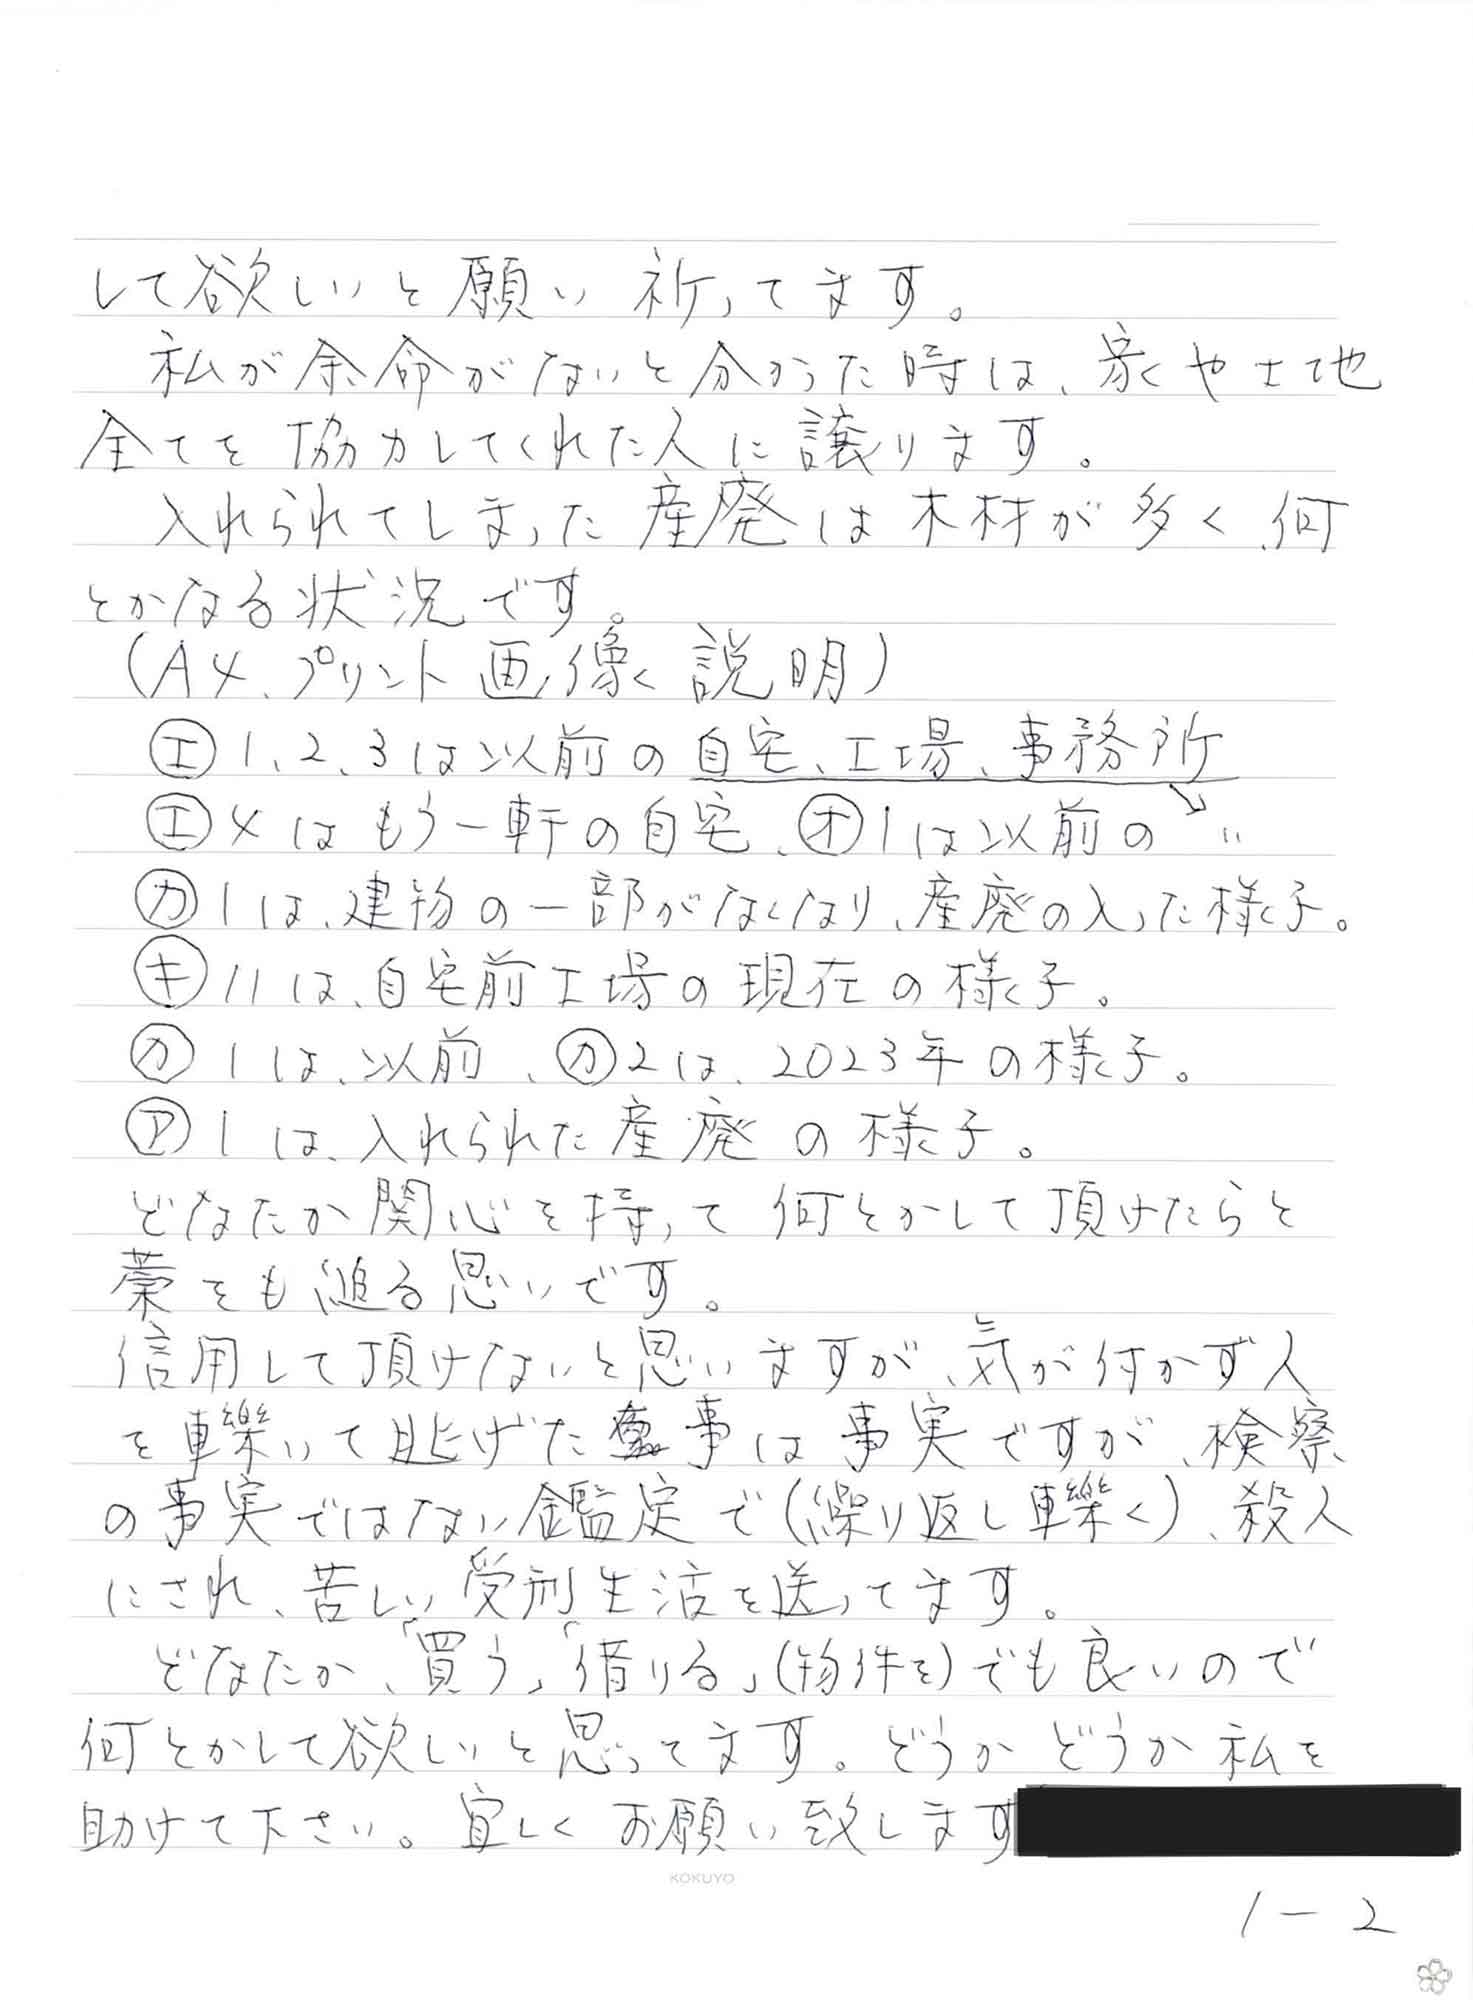 して欲しいと願い祈ってます。
私が余命がないと分かった時は、家や土地
全てを協力してくれた人に譲ります。
入れられてしまった産廃は木材が多く、何
とかなる状況です。
(A4、プリント画像説明)
㋓1、2、3は以前の自宅、工場、事務所
㋓4はもう一軒の自宅、㋔1は以前の〃
㋕1は、建物の一部がなくなり、産廃の入った様子。
㋖11は、自宅前工場の現在の様子。
㋕1は、以前、㋕2は、2023年の様子。
㋐1は、入れられた産廃の様子。
どなたか関心を持って何とかして頂けたらと
藁をも縋る思いです。
信用して頂けないと思いますが、気が付かず人
を轢いて逃げた事は事実ですが、検察
の事実ではない鑑定で(繰り返し轢く)、殺人
にされ、苦しい受刑生活を送ってます。
どなたか、「買う」「借りる」(物件を)でも良いので
何とかして欲しいと思ってます。どうかどうか私を
助けて下さい。宜しくお願い致します
KOKUYO
1-2